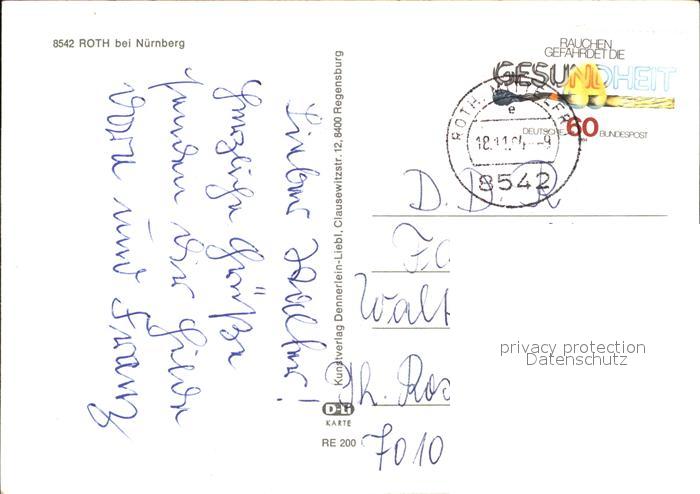 8542 ROTH bei Nürnberg
Lieber Walter!
Herzliche Grüße
senden Dir Hilde
und Franz
Kunstverlag Dennerlein-Liebl, Clausewitzstr. 12, 8400 Regensburg
D-Li
KARTE
RE 200
RAUCHEN
GEFÄHRDET DIE
GESUNDHEIT
DEUTSCHE 60 BUNDESPOST
ROTH, MITTELFR
e
18.11.84 - 9
8542
D. D. R
Fa
Walt
privacy protection
Datenschutz
Th. Ros
7010